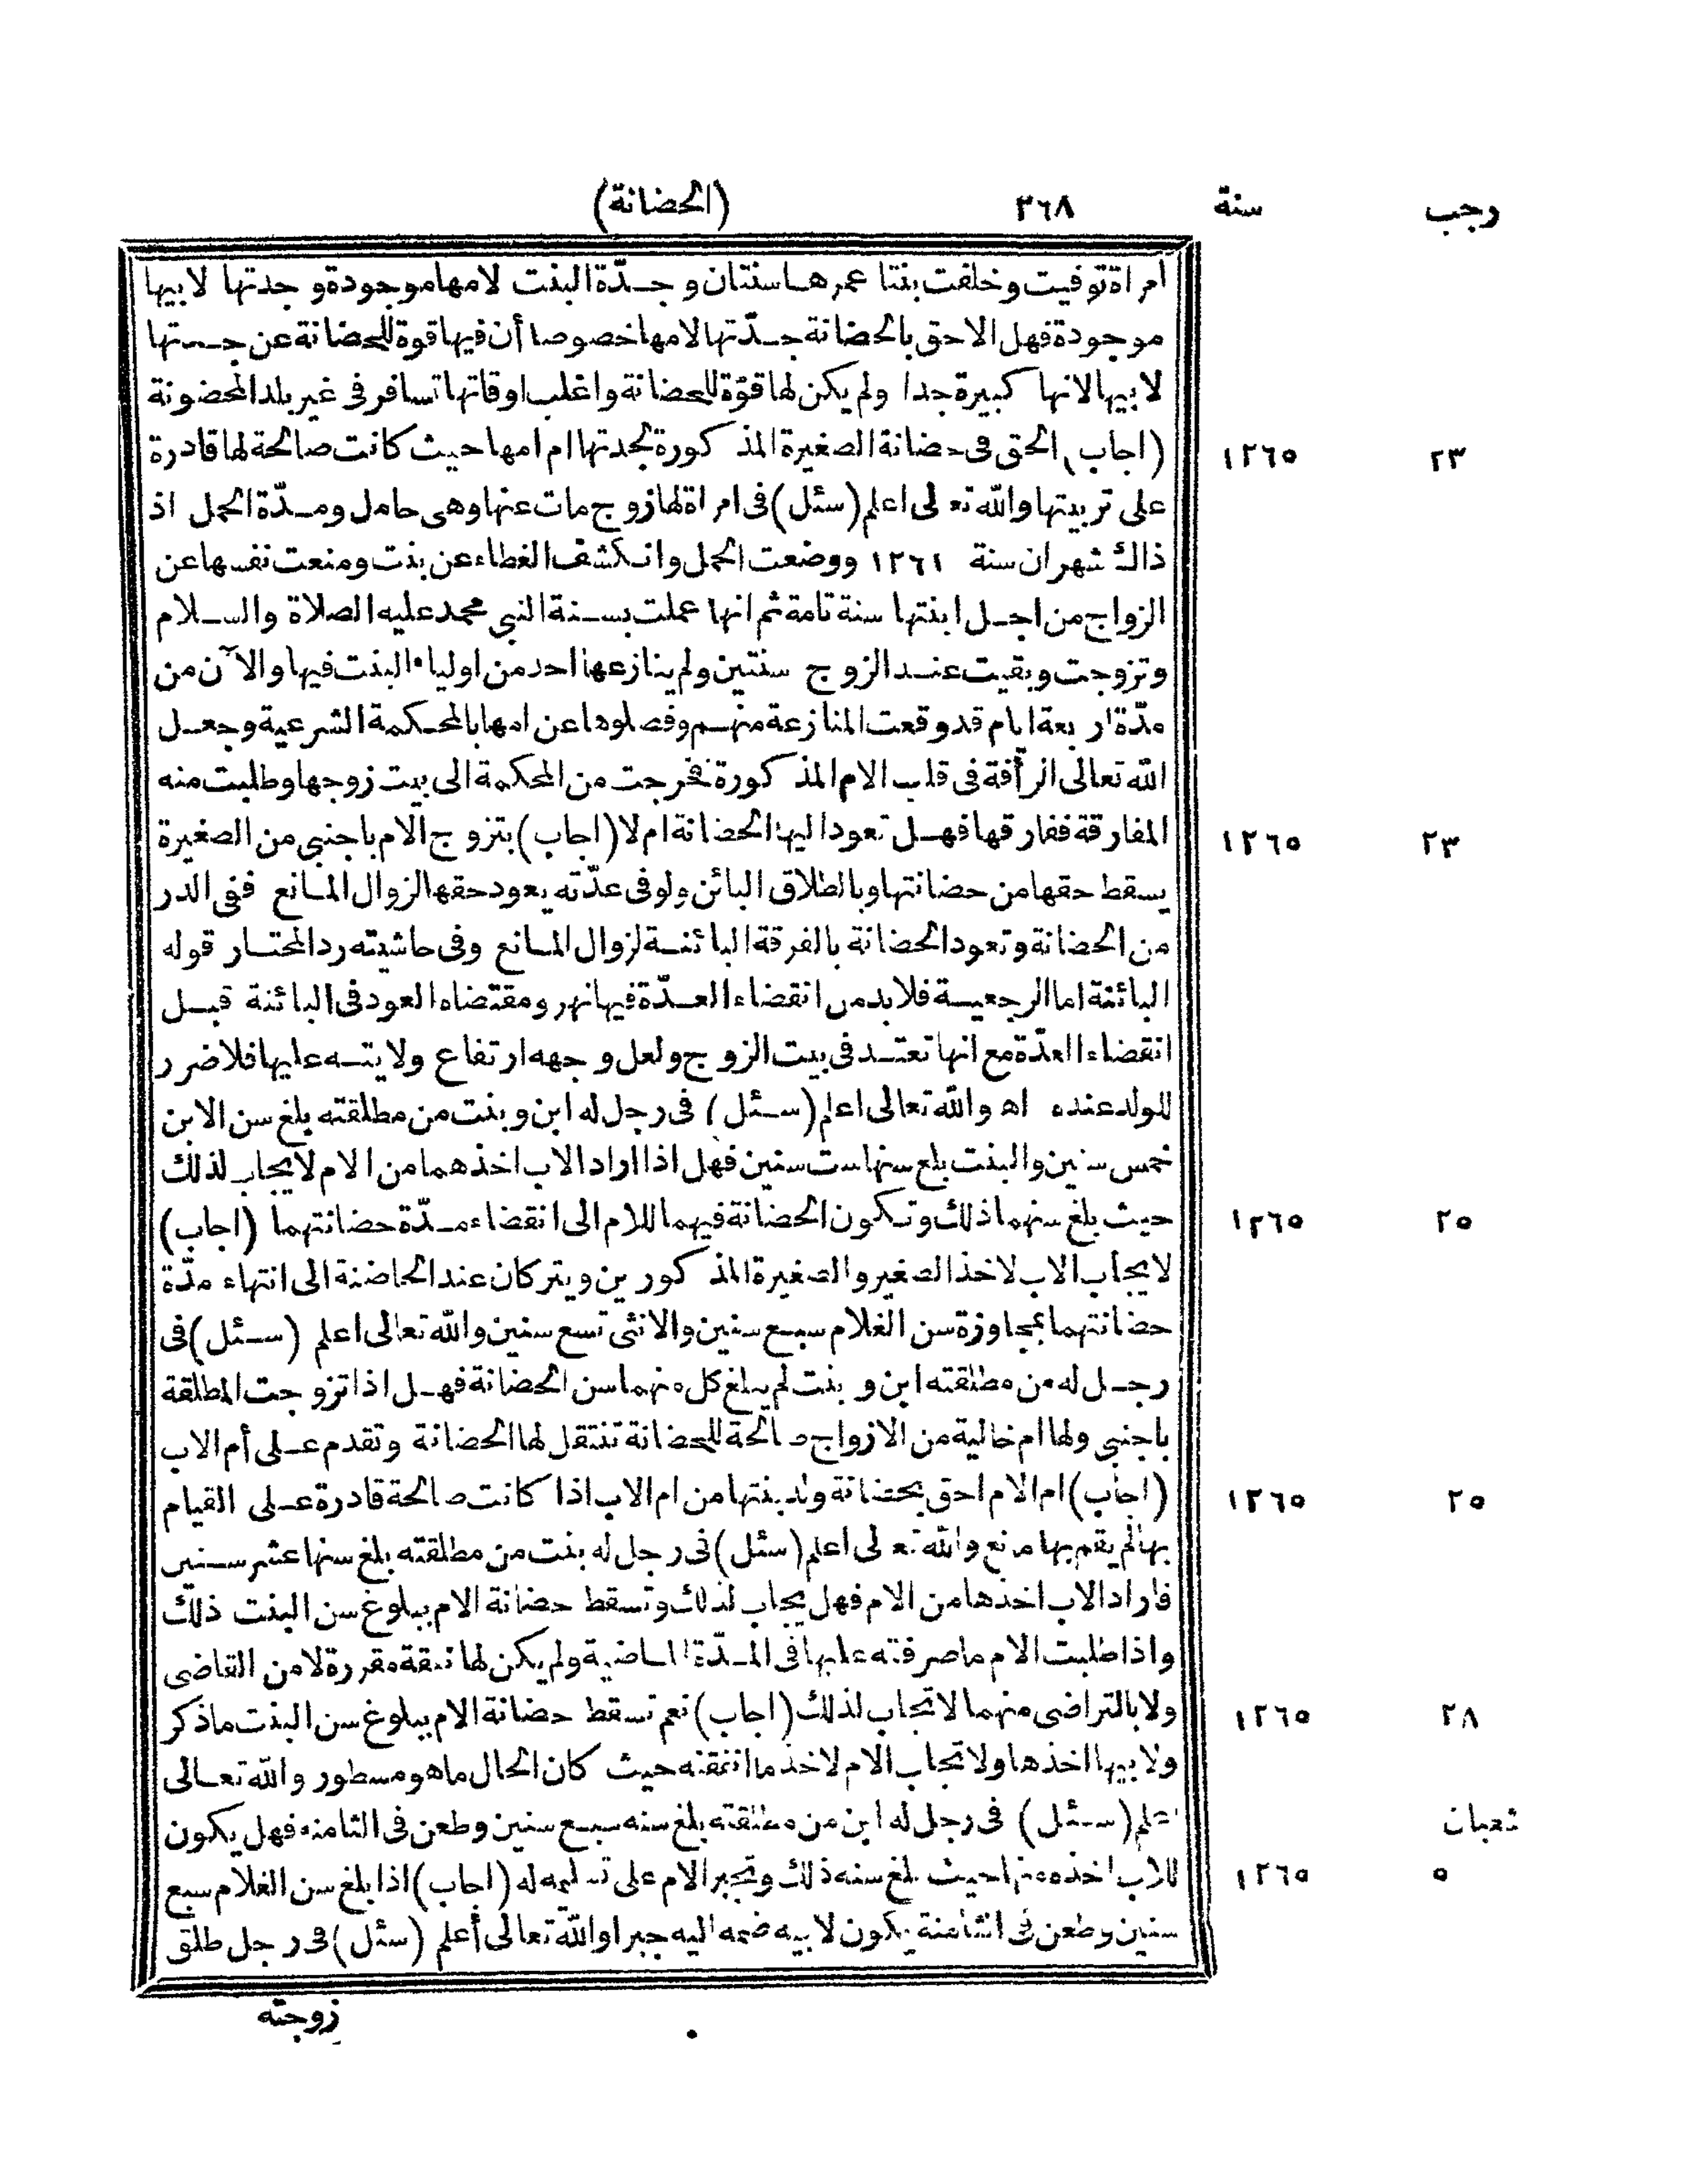 رجب سنة ٣٦٨ (الحضانة)
امراة توفيت وخلفت بنتا عمرها سنتان وجدّة البنت لامها موجودة وجدتها لابيها
موجودة فهل الاحق بالحضانة جدّتها لامها خصوصا أن فيها قوة للحضانة عن جدتها
لابيها لانها كبيرة جدا ولم يكن لها قوّة للحضانة واغلب اوقاتها تسافر فى غير بلد المحضونة
٢٣ ١٢٦٥ (اجاب) الحق فى حضانة الصغيرة المذكورة لجدتها ام امها حيث كانت صالحة لها قادرة
على تربيتها والله تعالى اعلم (سئل) فى امراة لها زوج مات عنها وهى حامل ومدّة الحمل اذ
ذاك شهران سنة ١٢٦١ ووضعت الحمل وانكشف الغطاء عن بنت ومنعت نفسها عن
الزواج من اجل ابنتها سنة تامة ثم انها عملت بسنة النبى محمد عليه الصلاة والسلام
وتزوجت وبقيت عند الزوج سنتين ولم ينازعها احد من اولياء البنت فيها والآن من
مدّة اربعة ايام قد وقعت المنازعة منهم وفصلوها عن امها بالمحكمة الشرعية وجعل
الله تعالى الرأفة فى قلب الام المذكورة فخرجت من المحكمة الى بيت زوجها وطلبت منه
٢٣ ١٢٦٥ المفارقة ففارقها فهل تعود اليها الحضانة ام لا (اجاب) بتزوج الام باجنبى من الصغيرة
يسقط حقها من حضانتها وبالطلاق البائن ولو فى عدّته يعود حقها لزوال المانع ففى الدر
من الحضانة وتعود الحضانة بالفرقة البائنة لزوال المانع وفى حاشيته رد المحتار قوله
البائنة اما الرجعية فلا بد من انقضاء العدّة فيها نهر ومقتضاه العود فى البائنة قبل
انقضاء العدّة مع انها تعتد فى بيت الزوج ولعل وجهه ارتفاع ولايته عليها فلا ضرر
للولد عنده اه والله تعالى اعلم (سئل) فى رجل له ابن وبنت من مطلقته بلغ سن الابن
خمس سنين والبنت بلغ سنها ست سنين فهل اذا اراد الاب اخذهما من الام لا يجاب لذلك
٢٥ ١٢٦٥ حيث بلغ سنهما ذلك وتكون الحضانة فيهما للام الى انقضاء مدّة حضانتهما (اجاب)
لا يجاب الاب لاخذ الصغير والصغيرة المذكورين ويتركان عند الحاضنة الى انتهاء مدّة
حضانتهما بمجاوزة سن الغلام سبع سنين والانثى تسع سنين والله تعالى اعلم (سئل) فى
رجل له من مطلقته ابن وبنت لم يبلغ كل منهما سن الحضانة فهل اذا تزوجت المطلقة
باجنبى ولها ام خالية من الازواج صالحة للحضانة تنتقل لها الحضانة وتقدم على أم الاب
٢٥ ١٢٦٥ (اجاب) ام الام احق بحضانة ولد بنتها من ام الاب اذا كانت صالحة قادرة على القيام
بها لم يقم بها مانع والله تعالى اعلم (سئل) فى رجل له بنت من مطلقته بلغ سنها عشر سنين
فاراد الاب اخذها من الام فهل يجاب لذلك وتسقط حضانة الام ببلوغ سن البنت ذلك
واذا طلبت الام ما صرفته عليها فى المدّة الماضية ولم يكن لها نفقة مقررة لا من القاضى
٢٨ ١٢٦٥ ولا بالتراضى منهما لا تجاب لذلك (اجاب) نعم تسقط حضانة الام ببلوغ سن البنت ما ذكر
ولابيها اخذها ولا تجاب الام لاخذ ما انفقته حيث كان الحال ما هو مسطور والله تعالى
شعبان اعلم (سئل) فى رجل له ابن من مطلقته بلغ سنه سبع سنين وطعن فى الثامنه فهل يكون
٥ ١٢٦٥ للاب اخذه منها حيث بلغ سنه ذلك وتجبر الام على تسليمه له (اجاب) اذا بلغ سن الغلام سبع
سنين وطعن فى الثامنة يكون لابيه ضمه اليه جبرا والله تعالى أعلم (سئل) فى رجل طلق
زوجته